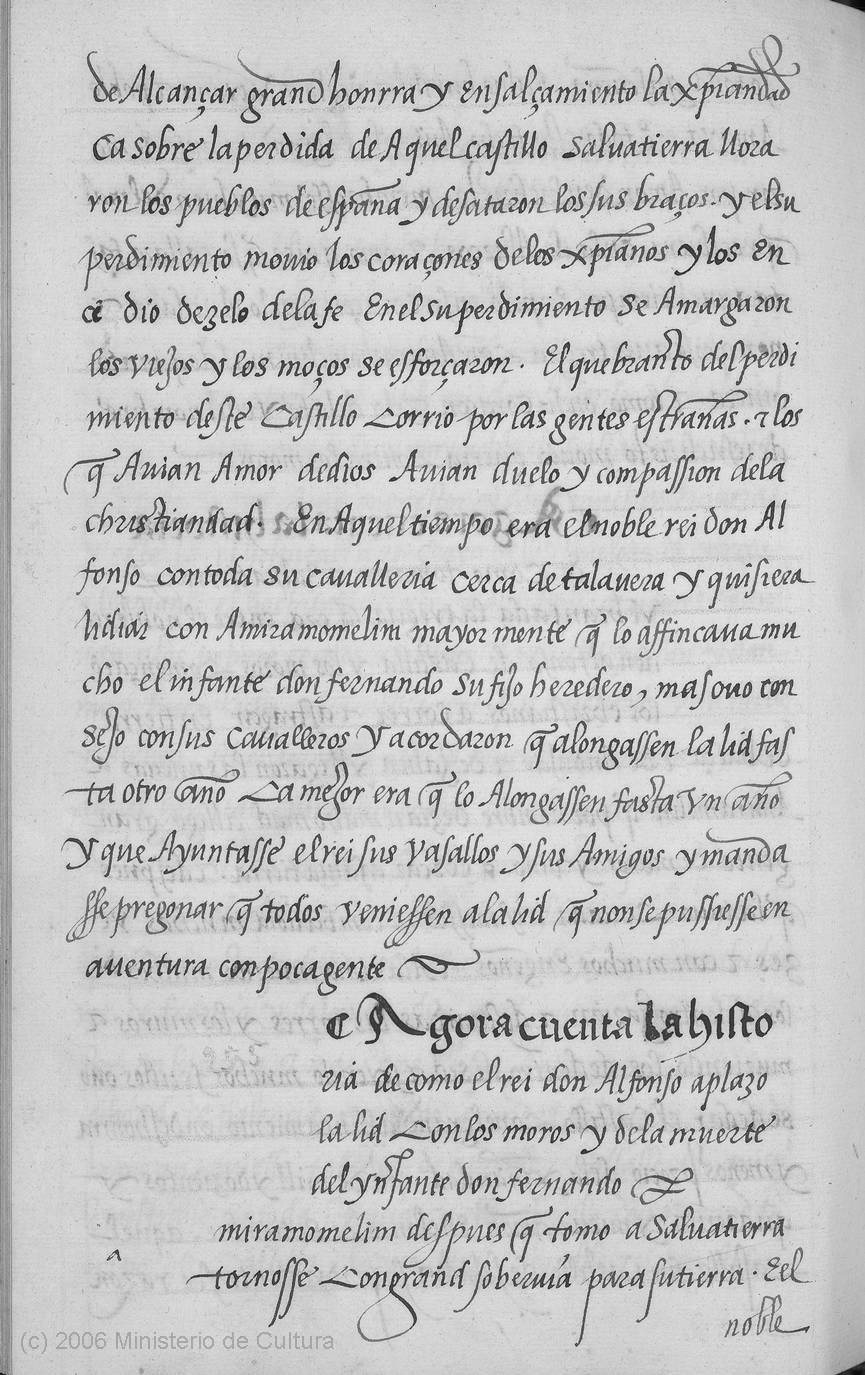 de Alcançar grand honrra y Ensalçamiento la xp̃iandad
Ca sobre la perdida de Aquel castillo Salvatierra llora
ron los pueblos de españa y desataron los sus braços. y el su
perdimiento movio los coraçones de los xp̃ianos y los En
cẽ dio de zelo de la fe En el su perdimiento se Amargaron
los viejos y los moços se esforçaron. El quebranto del perdi
miento deste Castillo Corrio por las gentes estrañas. ⁊ los
q̃ Avian Amor de dios Avian duelo y compassion de la
christiandad. En Aquel tiempo era el noble rei don Al
fonso con toda su cavalleria cerca de talavera y quisiera
lidiar con Amiramomelim mayor mente q̃ lo affincava mu
cho el infante don fernando su fijo heredero, mas ovo con
sejo con sus Cavalleros y acordaron q̃ alongassen la lid fas
ta otro año Ca mejor era q̃ lo Alongassen fasta vn año
y que Ayuntasse el rei sus vasallos y sus Amigos y manda
sse pregonar q̃ todos veniessen a la lid q̃ non se pussiesse en
aventura con poca gente
¶ Agora cuenta la histo
ria de como el rei don Alfonso aplazo
la lid Con los moros y de la muerte
del ynfante don fernando
miramomelim despues q̃ tomo a Salvatierra
a
tornosse Con grand sobervia para su tierra. E el
noble
(c) 2006 Ministerio de Cultura